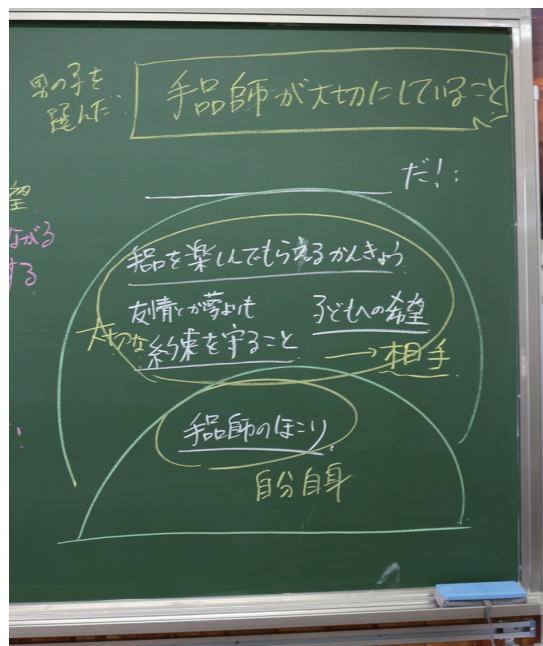 男の子を
選んだ
手品師が大切にしていること
だ!
望
ながる
する
手品を楽しんでもらえるかんきょう
友情とか夢よりも
子どもへの希望
大切な
約束を守ること
→相手
手品師のほこり
自分自身